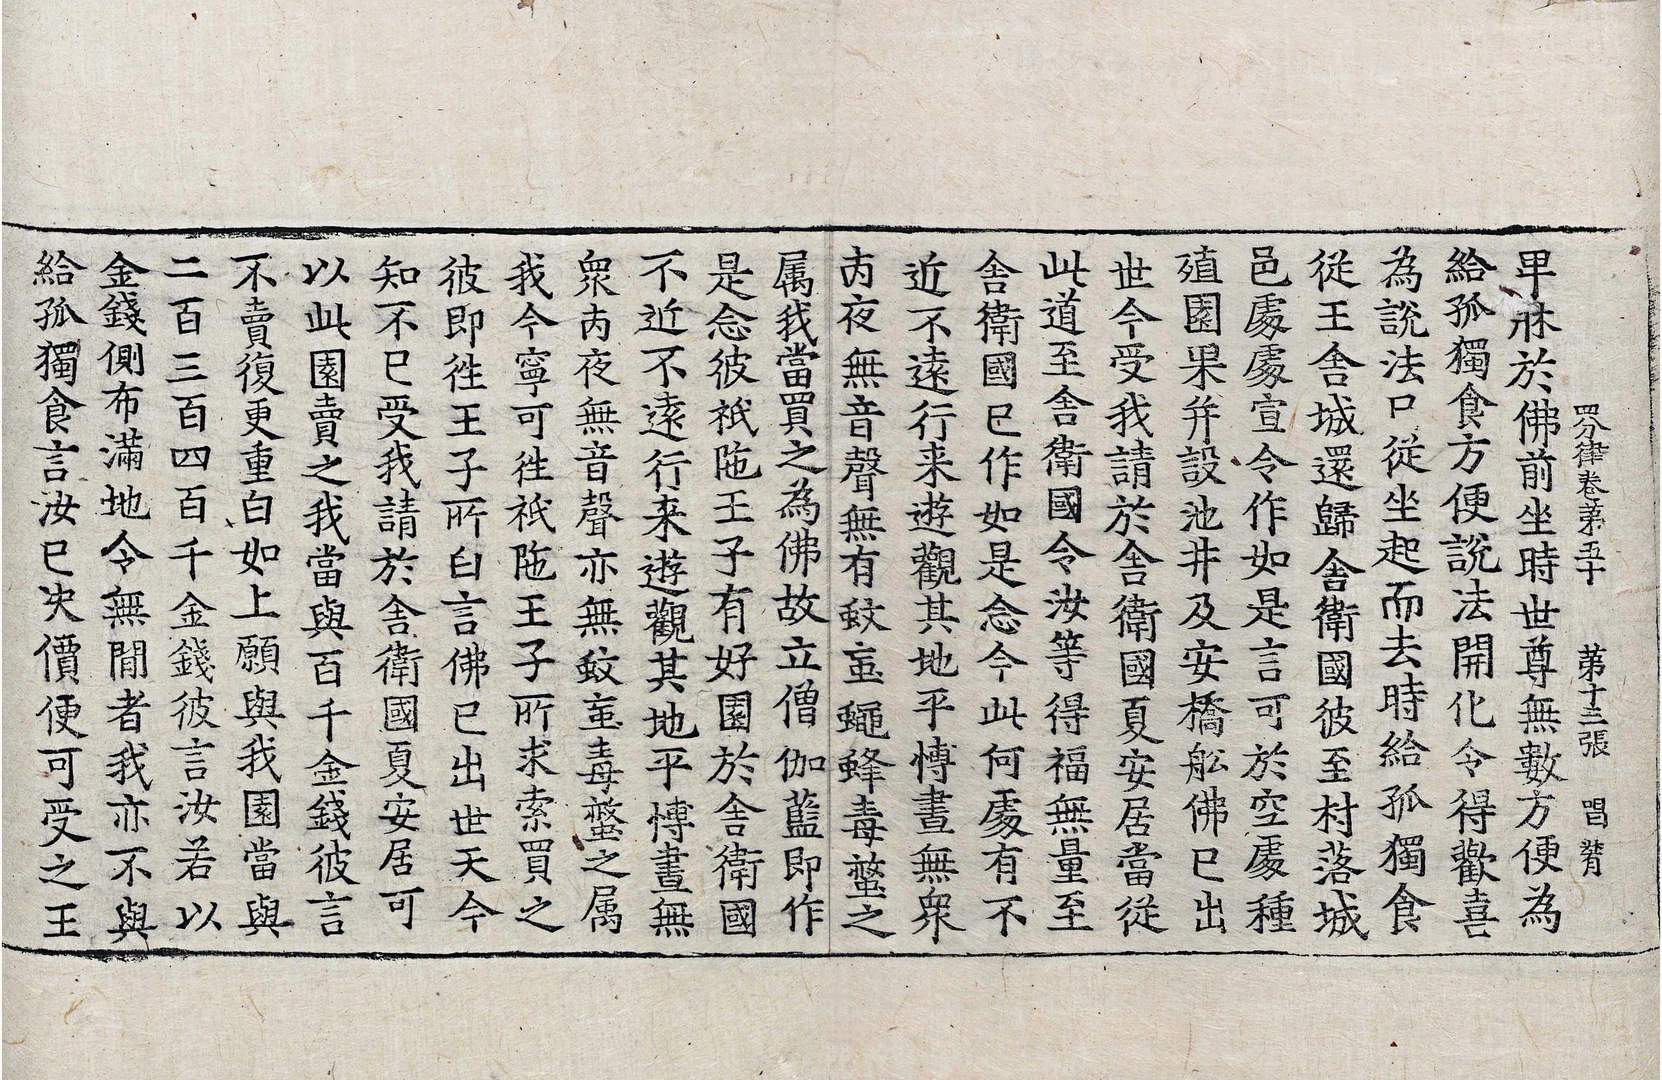 四分律卷第五十 第十三張 唱
卑牀於佛前坐時世尊無數方便為
給孤獨食方便說法開化令得歡喜
為說法已從坐起而去時給孤獨食
從王舍城還歸舍衛國彼至村落城
邑處處宣令作如是言可於空處種
殖園果并設池井及安橋舩佛已出
世今受我請於舍衛國夏安居當從
此道至舍衛國令汝等得福無量至
舍衛國已作如是念今此何處有不
近不遠行来遊觀其地平博晝無衆
內夜無音聲無有蚊䖟蠅蜂毒螫之
属我當買之為佛故立僧伽藍即作
是念彼祇陁王子有好園於舍衛國
不近不遠行来遊觀其地平博晝無
衆內夜無音聲亦無蚊䖟毒螫之属
我今寧可徃祇陁王子所求索買之
彼即徃王子所白言佛已出世天今
知不已受我請於舍衛國夏安居可
以此園賣之我當與百千金錢彼言
不賣復更重白如上願與我園當與
二百三百四百千金錢彼言汝若以
金錢側布滿地令無間者我亦不與
給孤獨食言汝已决價便可受之王